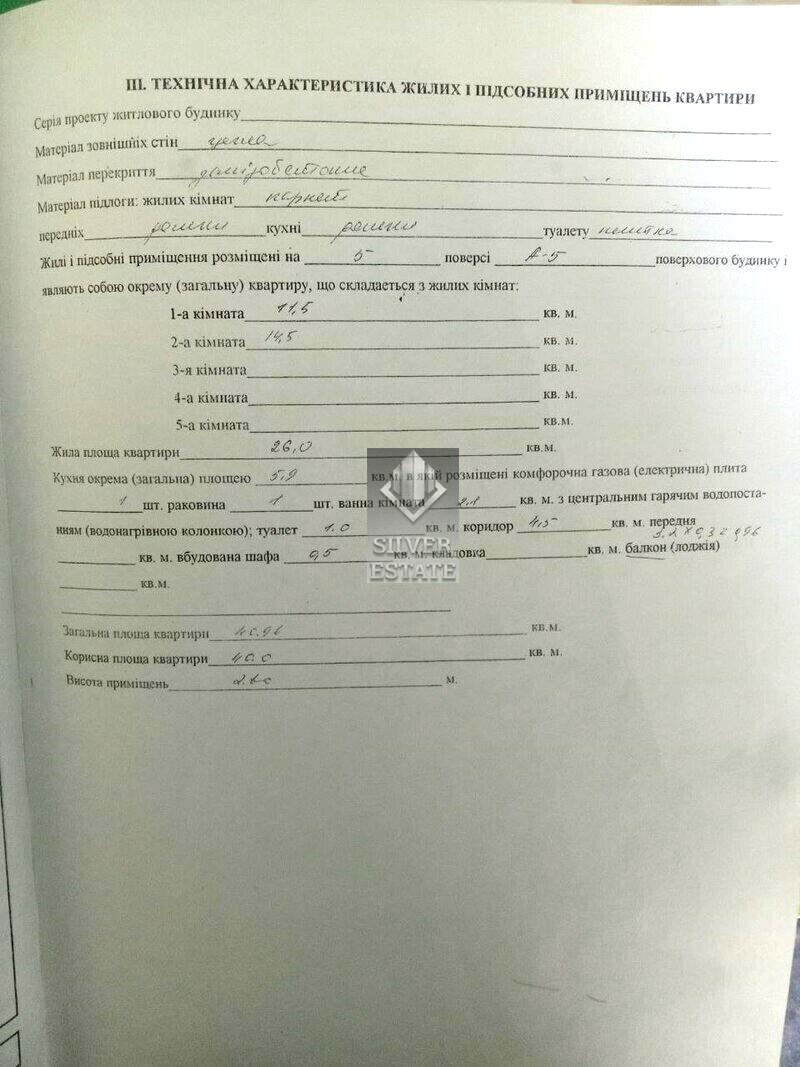 III. ТЕХНІЧНА ХАРАКТЕРИСТИКА ЖИЛИХ І ПІДСОБНИХ ПРИМІЩЕНЬ КВАРТИРИ
Серія проекту житлового будинку
Матеріал зовнішніх стін цегла
Матеріал перекриття залізобетонне
Матеріал підлоги: жилих кімнат паркет
передніх кухні туалету плитка
Жилі і підсобні приміщення розміщені на 5 поверсі А-5 поверхового будинку і
являють собою окрему (загальну) квартиру, що складається з жилих кімнат:
1-а кімната 11,5 кв. м.
2-а кімната 14,5 кв. м.
3-я кімната кв. м.
4-а кімната кв. м.
5-а кімната кв.м.
Жила площа квартири 26,0 кв.м.
Кухня окрема (загальна) площею 5,9 кв.м. в якій розміщені комфорочна газова (електрична) плита
1 шт. раковина 1 шт. ванна кімната 2.1 кв. м. з центральним гарячим водопоста-
нням (водонагрівною колонкою); туалет 1.0 кв. м. коридор 4,5 кв. м. передня
3.2х0,3=0,96
кв. м. вбудована шафа 0,5 кв. м. кладовка кв. м. балкон (лоджія)
кв.м.
SILVER
ESTATE
Загальна площа квартири 40.96 кв.м.
Корисна площа квартири 40.0 кв. м.
Висота приміщень м.